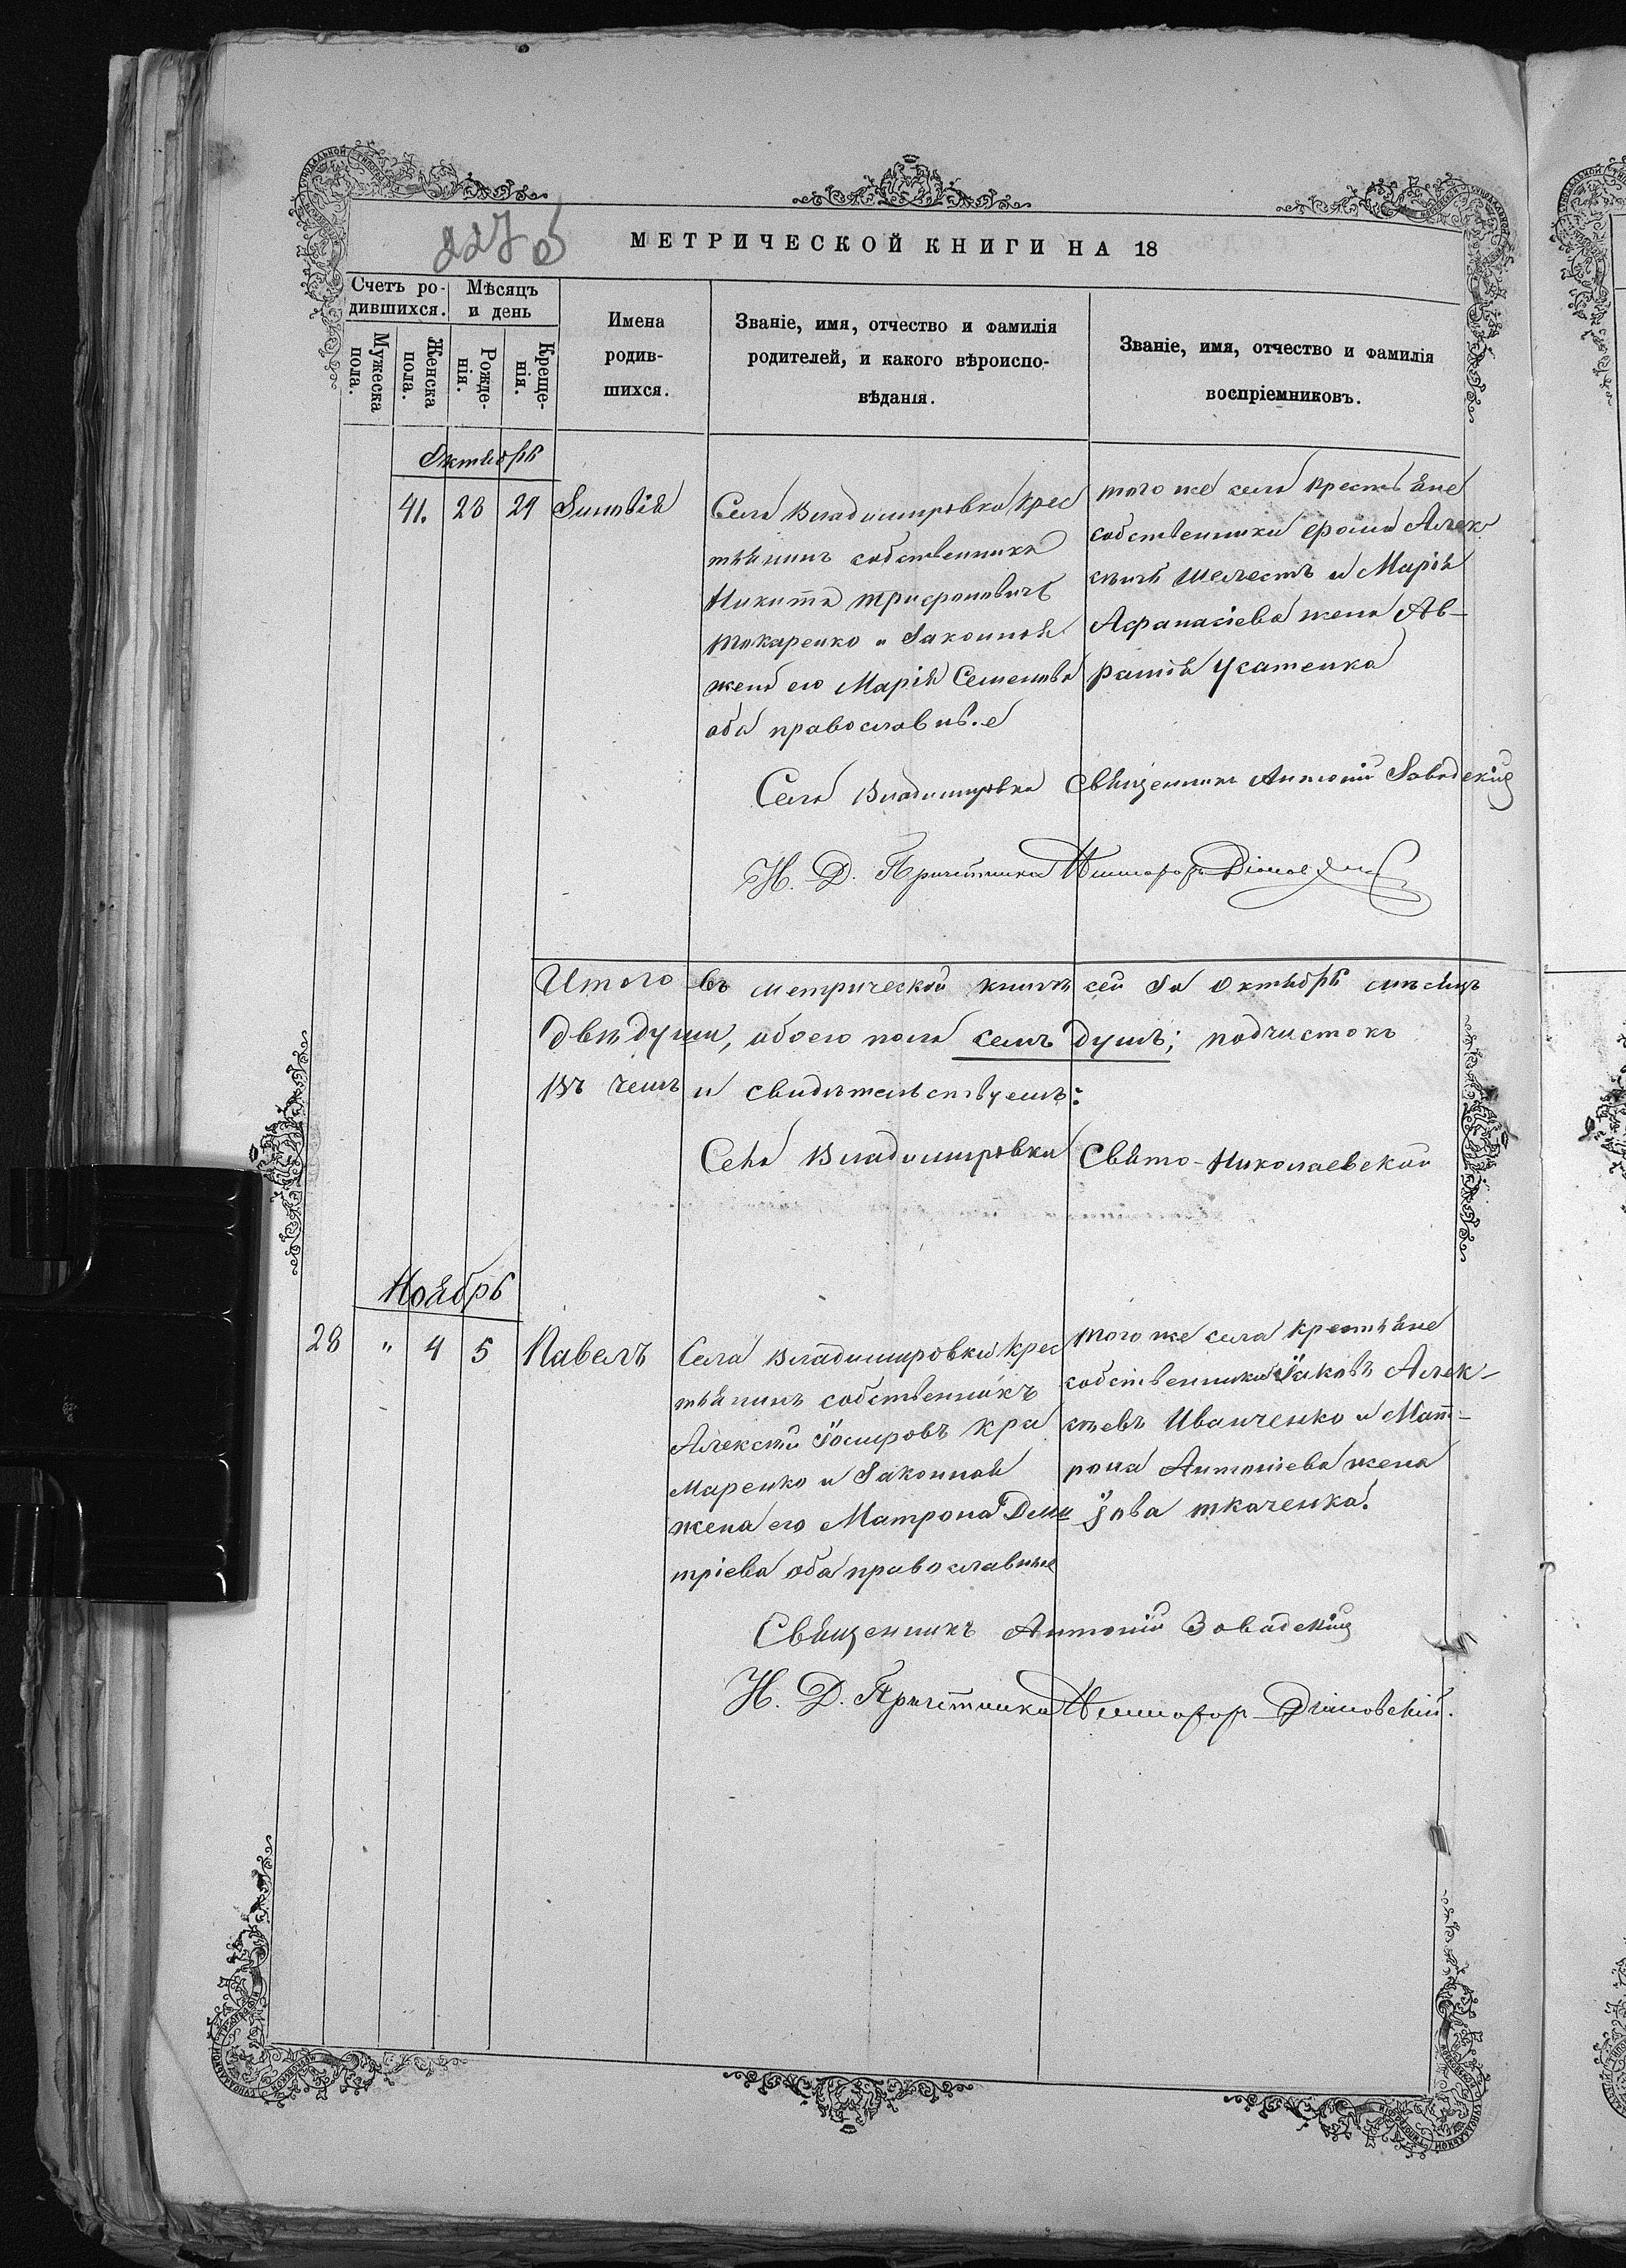 227 об
МЕТРИЧЕСКОЙ КНИГИ НА 18
Счетъ ро-
дившихся.
Мѣсяцъ
и день
Мужеска
пола.
Женска
пола.
Рожде-
нія.
Креще-
нія.
Имена
родив-
шихся.
Званіе, имя, отчество и фамилія
родителей, и какого вѣроиспо-
вѣданія.
Званіе, имя, отчество и фамилія
воспріемниковъ.
Октябрь
41. 28 29 Зиновія
Села Владимировки крес
тьянинъ собственникъ
Никита Трифоновичъ
Токаренко и законная
жена его Марія Семенова
оба православные
того же села крестьяне
собственники Фома Алек
сѣичъ Шелестъ и Марія
Афанасіева жена Ав-
рамія Усатенка
Села Владимировки Священникъ Антоній Завадскій
И. Д. Причетника
Итого въ метрической книгѣ сей за октябрь мѣсяцъ
двѣ души, обоего пола семъ душъ; подчистокъ
въ чемъ и свидѣтельствуемъ:
Села Владимировки Свято-Николаевской
Ноябрь
28 " 4 5 Павелъ
Села Владимировки крес
тьянинъ собственникъ
Алексѣй Іосифовъ Кра
маренко и законная
жена его Матрона Дми
тріева оба православные
того же села крестьяне
собственники Іаковъ Алек-
сѣевъ Иванченко и Мат-
рона Антоніева жена
Іова Ткаченка.
Священникъ Антоній Завадскій
И. Д. Причетника Никифоръ Діановскій.